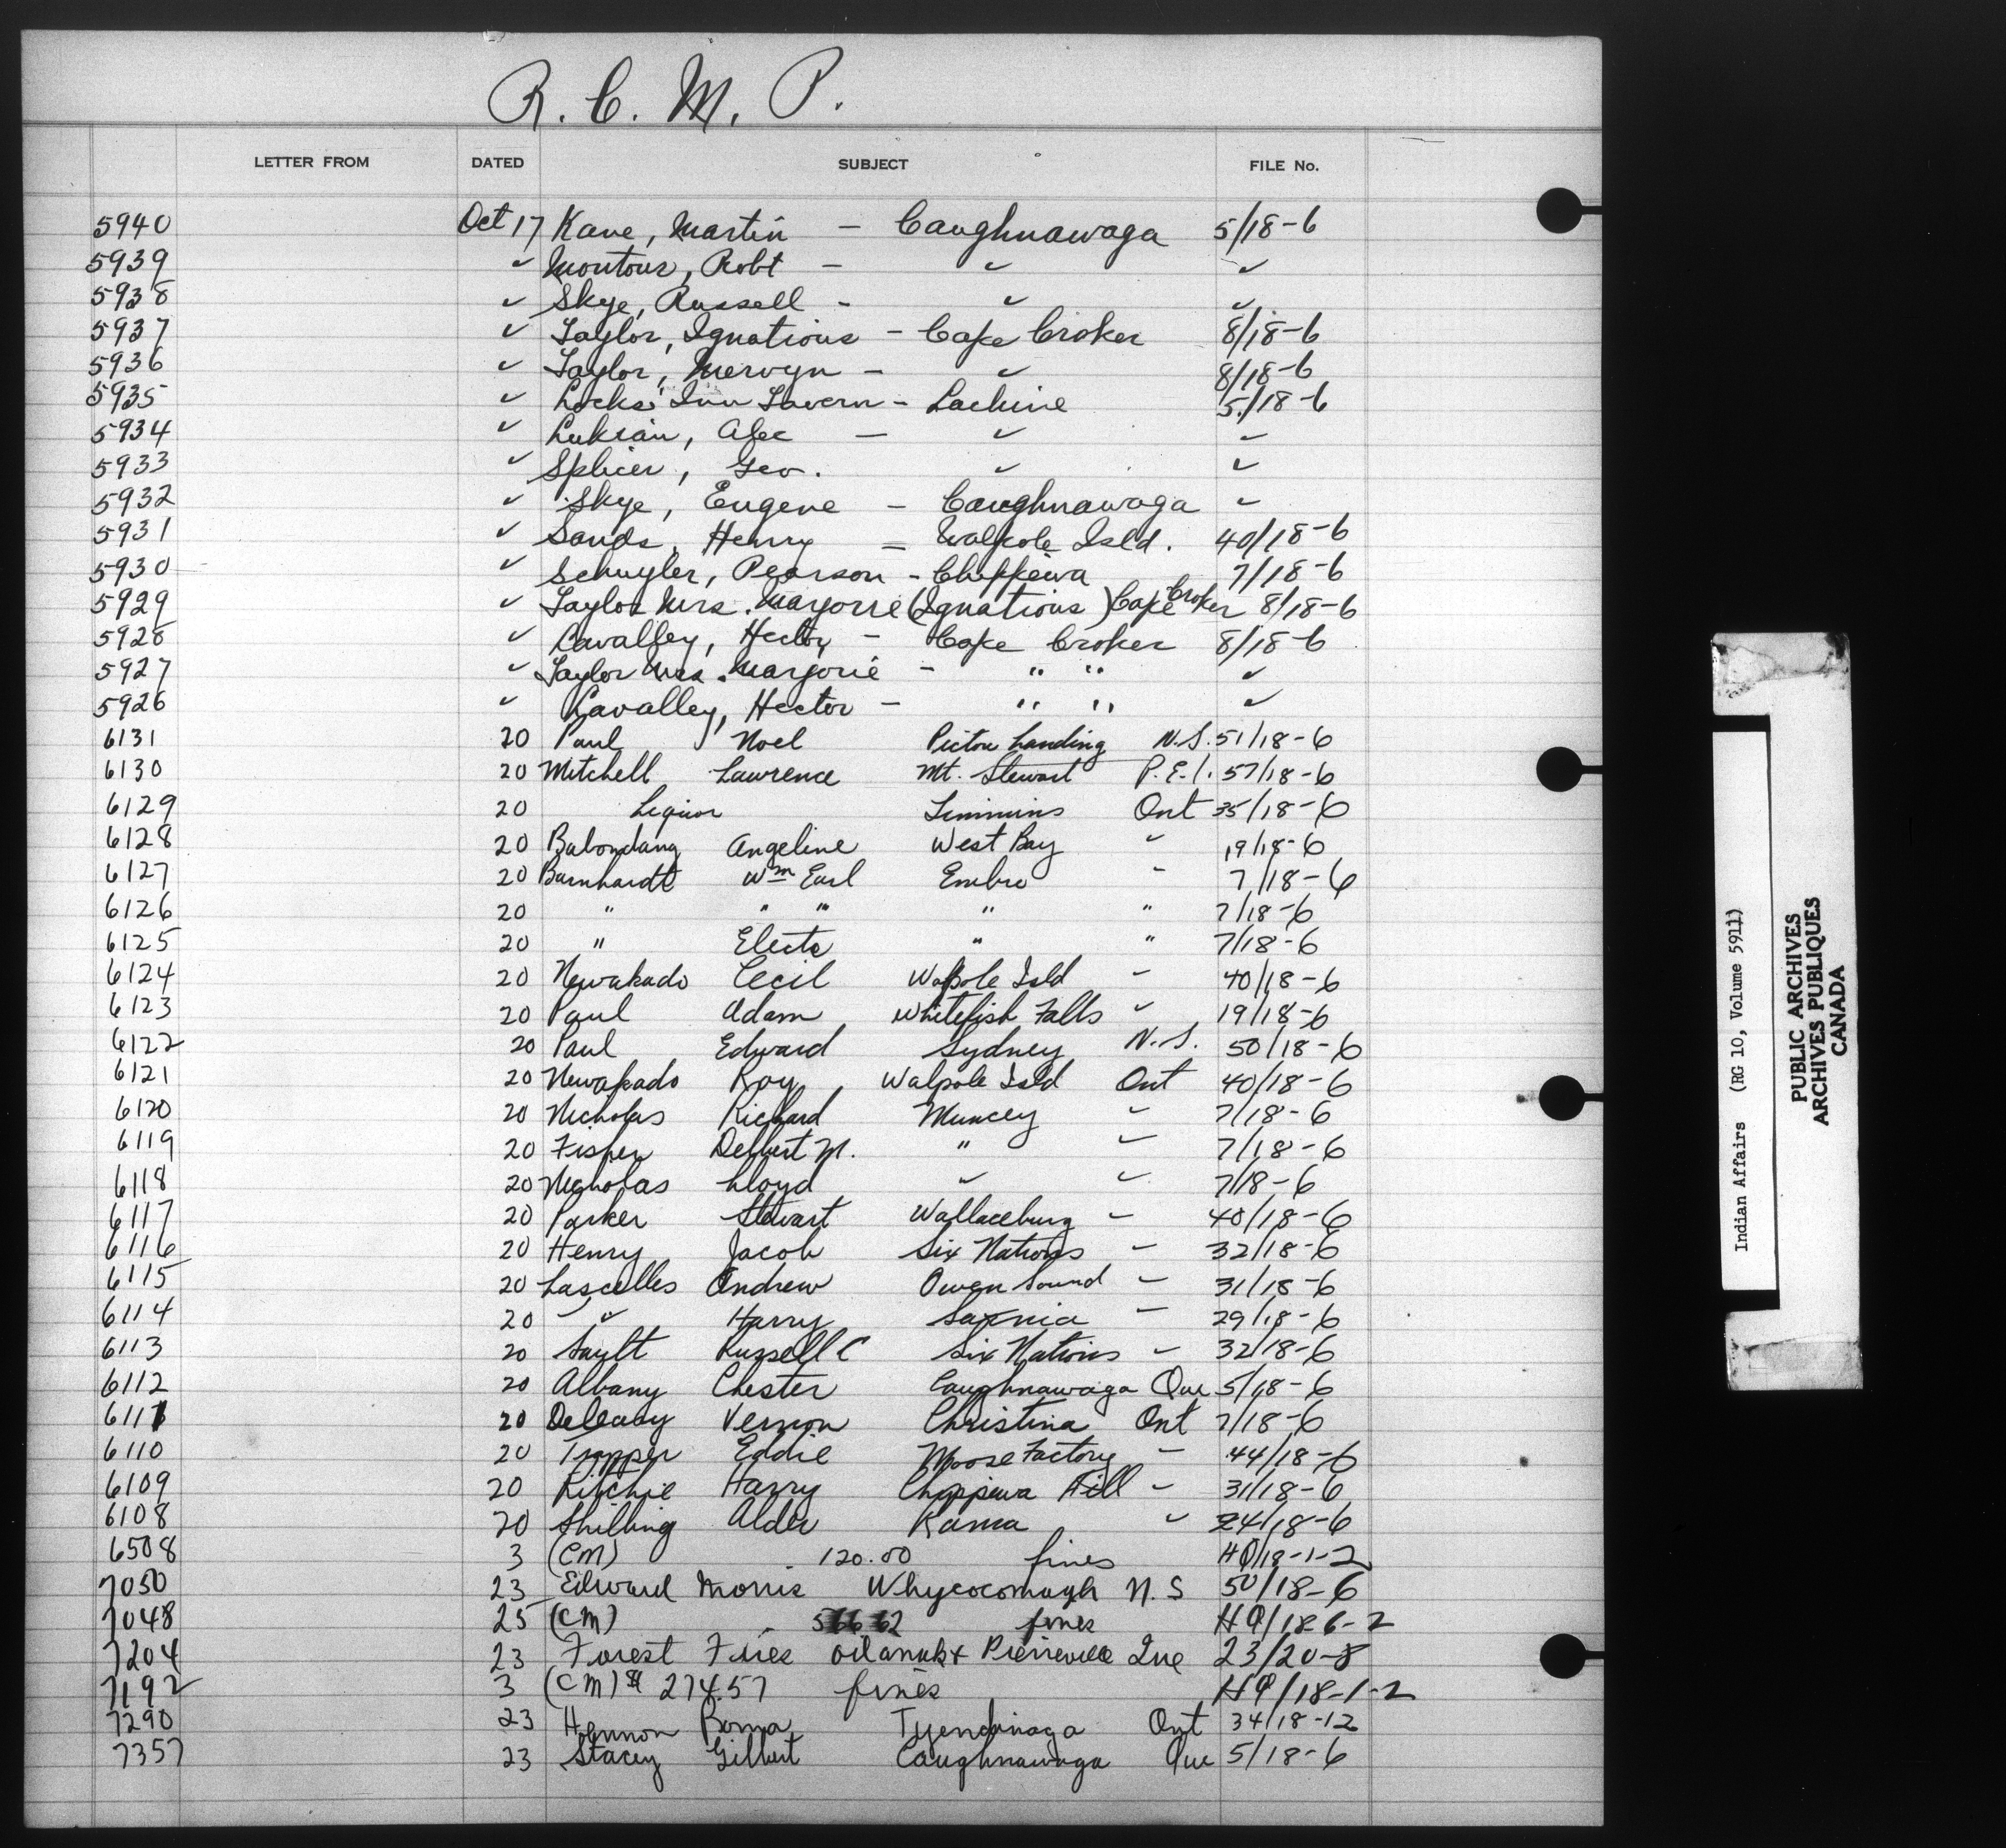 R. C. M. P.
LETTER FROM DATED SUBJECT FILE No.
5940 Oct 17 Kane, Martin - Caughnawaga 5/18-6
5939 " Montour, Robt - " "
5938 " Skye, Russell - " "
5937 " Taylor, Ignatious - Cape Croker 8/18-6
5936 " Taylor, Mervyn - " 8/18-6
5935 " Locks Inn Tavern - Lachine 5/18-6
5934 " Luksain, Alec - " "
5933 " Splicer, Geo. " "
5932 " Skye, Eugene - Caughnawaga "
5931 " Sands, Henry - Walpole Isld. 40/18-6
5930 " Schuyler, Pearson - Chippewa 7/18-6
5929 " Taylor Mrs. Marjorie (Ignatious) Cape Croker 8/18-6
5928 " Lavalley, Hector - Cape Croker 8/18-6
5927 " Taylor Mrs. Marjorie - " " "
5926 " Lavalley, Hector - " " "
6131 20 Paul Noel Pictou Landing N.S. 51/18-6
6130 20 Mitchell Lawrence Mt. Stewart P.E.I. 57/18-6
6129 20 Liquor Timmins Ont 35/18-6
6128 20 Babondang Angeline West Bay " 19/18-6
6127 20 Barnhardt Wm Earl Embro " 7/18-6
6126 20 " " " " " 7/18-6
6125 20 " Electa " " 7/18-6
6124 20 Newakado Cecil Walpole Isld " 40/18-6
6123 20 Paul Adam Whitefish Falls " 19/18-6
6122 20 Paul Edward Sydney N.S. 50/18-6
6121 20 Newakado Roy Walpole Isld Ont 40/18-6
6120 20 Nicholas Richard Muncey " 7/18-6
6119 20 Fisher Delbert M. " " 7/18-6
6118 20 Nicholas Lloyd " " 7/18-6
6117 20 Parker Stewart Wallaceburg " 40/18-6
6116 20 Henry Jacob Six Nations " 32/18-6
6115 20 Lascelles Andrew Owen Sound " 31/18-6
6114 20 " Harry Sarnia " 29/18-6
6113 20 Sault Russell C Six Nations " 32/18-6
6112 20 Albany Chester Caughnawaga Que 5/18-6
6111 20 Deleary Vernon Christina Ont 7/18-6
6110 20 Trapper Eddie Moose Factory " 44/18-6
6109 20 Ritchie Harry Chippewa Hill " 31/18-6
6108 20 Shilling Alder Rama " 24/18-6
6508 3 (CM) 120.00 fines HQ/18-1-2
7050 23 Edward Morris Whycocomagh N.S 50/18-6
7048 25 (CM) fines HQ/18-6-2
7204 23 Forest Fires Odanak & Pierreville Que 23/20-8
7192 3 (CM) $ 274.57 fines HQ/18-1-2
7290 23 Hannon Tyendinaga Ont 34/18-12
7357 23 Stacey Gilbert Caughnawaga Que 5/18-6
Indian Affairs (RG 10, Volume 5911)
PUBLIC ARCHIVES
ARCHIVES PUBLIQUES
CANADA